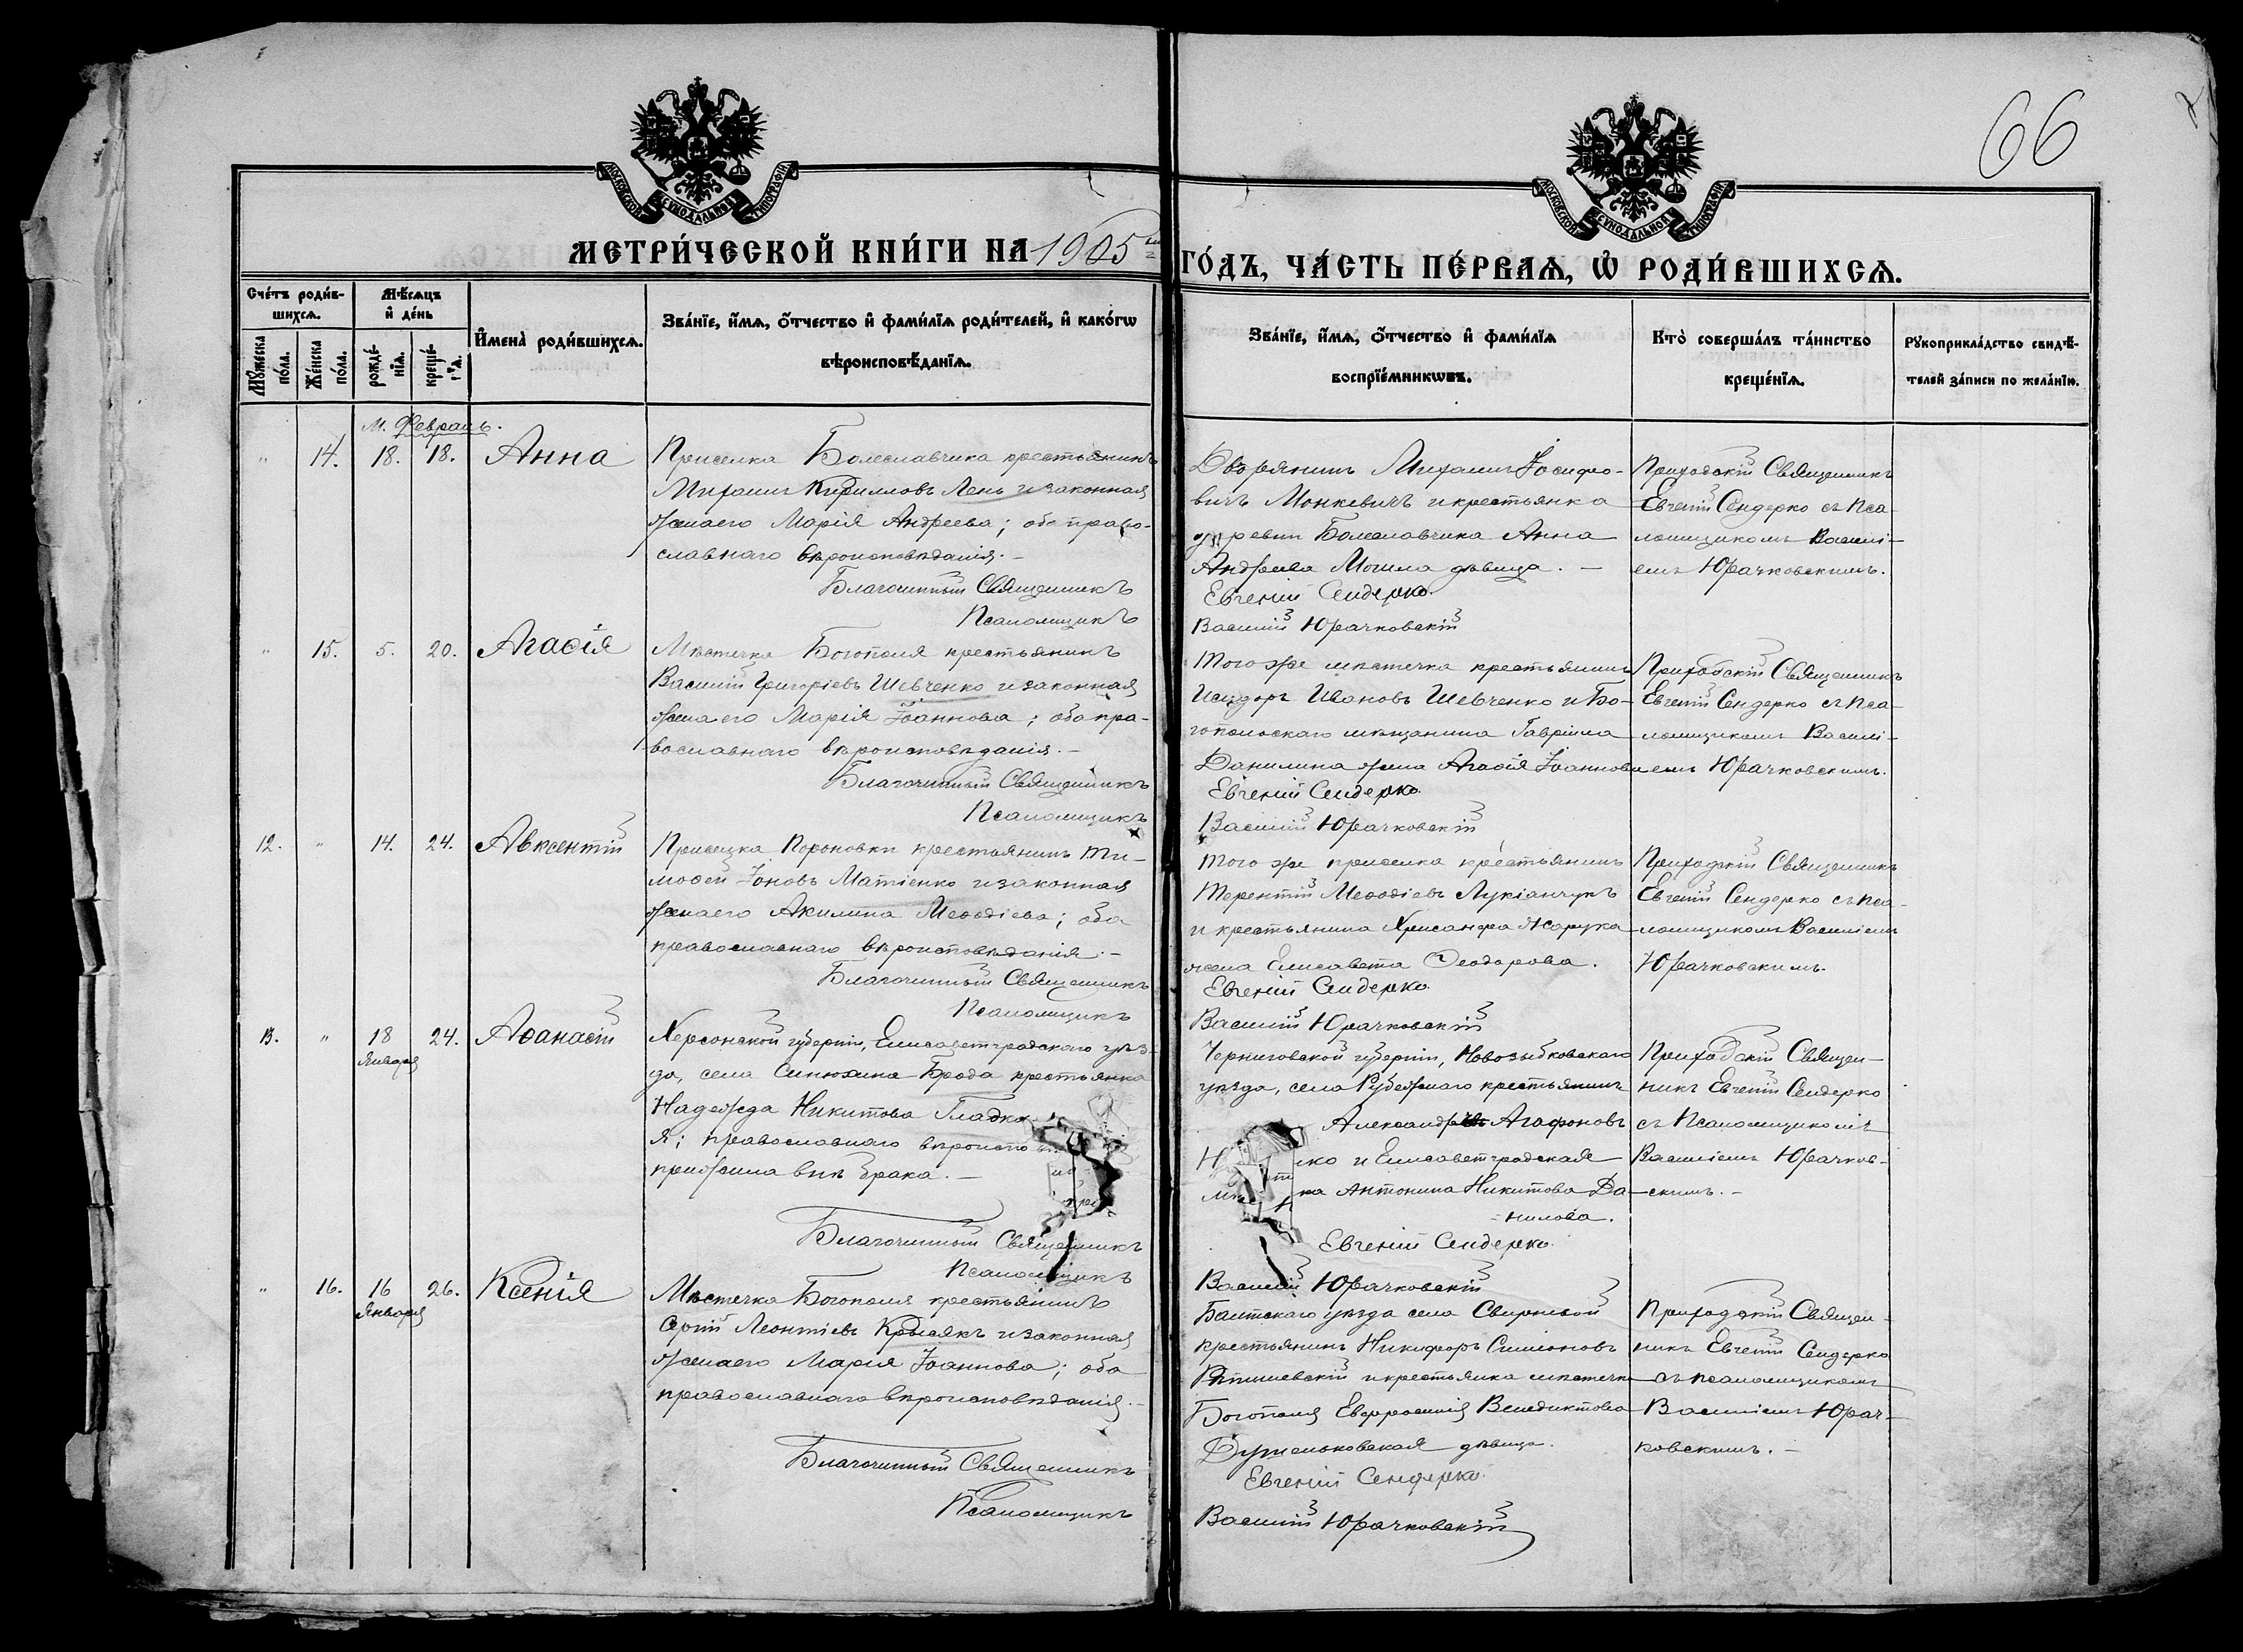 66
МОСКОВСКОЙ СѴНОДАЛЬНОЙ ТИПОГРАФІИ
МОСКОВСКОЙ СѴНОДАЛЬНОЙ ТИПОГРАФІИ
МЕТРИ́ЧЕСКОЙ КНИ́ГИ НА 1905 ГО́ДЪ, ЧА́СТЬ ПЕ́РВАѦ, Ѽ РОДИ́ВШИХСѦ.
Сче́тъ роди́в-
шихсѧ.
Мꙋ́жеска по́ла.
Же́нска по́ла.
Мѣ́сѧцъ и҆ де́нь
рожде́-
нїѧ.
креще́-
нїѧ.
И҆мена̀ роди́вшихсѧ.
Зва́нїе, и҆́мѧ, ѻ҆́тчество и҆ фами́лїѧ роди́телей, и҆ како́гѡ
вѣроисповѣ́данїѧ.
Зва́нїе, и҆́мѧ, ѻ҆́тчество и҆ фами́лїѧ
воспрїе́мникѡвъ.
Кто̀ соверша́лъ та́инство
креще́нїѧ.
Рꙋкоприкла́дство свидѣ́-
телей за́писи по жела́нїю.
м. Февраль.
" 14. 18. 18. Анна
Приселка Болеславчика крестьянинъ
Михаилъ Кирилловъ Лень и законная
жена его Марія Андреева; оба право-
славнаго вѣроисповѣданія. –
Благочинный Священникъ
Псаломщикъ
Дворянинъ Михаилъ Іосифо-
вичъ Монкевичъ и крестьянка
деревни Болеславчика Анна
Андреева Могила дѣвица. –
Евгеній Сендерко
Василій Юрачковскій
Приходскій Священникъ
Евгеній Сендерко съ Пса-
ломщикомъ Василі-
емъ Юрачковскимъ.
" 15. 5. 20. Агаѳія
Мѣстечка Богополя крестьянинъ
Василій Григоріевъ Шевченко и законная
жена его Марія Іоаннова; оба пра-
вославнаго вѣроисповѣданія. –
Благочинный Священникъ
Псаломщикъ
Того же мѣстечка крестьянинъ
Исидоръ Ивановъ Шевченко и Бо-
гопольскаго мѣщанина Гавріила
Данилина жена Агаѳія Іоаннова
Евгеній Сендерко
Василій Юрачковскій
Приходскій Священникъ
Евгеній Сендерко съ Пса-
ломщикомъ Василі-
емъ Юрачковскимъ.
12. " 14. 24. Авксентій
крестьянинъ Ти-
моѳей Іоновъ Матіенко и законная
жена его Акилина Меѳодіева; оба
православнаго вѣроисповѣданія. –
Благочинный Священникъ
Псаломщикъ
Того же приселка крестьянинъ
Терентій Меѳодіевъ Лукіанчукъ
и крестьянина Хрисанфа
жена Елисавета Ѳеодорова.
Евгеній Сендерко
Василій Юрачковскій
Приходскій Священникъ
Евгеній Сендерко съ Пса-
ломщикомъ Василіемъ
Юрачковскимъ.
13. " 18 Января 24. Аѳанасій
Херсонской губерніи, Елисаветградскаго уѣз-
да, села Синюхина Брода крестьянка
Надежда Никитова Гладко
я; православнаго вѣроиспо
прижила внѣ брака. –
Благочинный Священникъ
Псаломщикъ
Черниговской губерніи, Новозыбковскаго
уѣзда, села крестьянинъ
Александръ Агафоновъ
и Елисаветградская
Антонина Никитова Да-
нилова.
Евгеній Сендерко
Василій Юрачковскій
Приходскій Священ-
никъ Евгеній Сендерко
съ Псаломщикомъ
Василіемъ Юрачков-
скимъ. –
" 16. 16 Января 26. Ксенія
Мѣстечка Богополя крестьянинъ
Сергій Леонтіевъ Крысякъ и законная
жена его Марія Іоаннова; оба
православнаго вѣроисповѣданія. –
Благочинный Священникъ
Псаломщикъ
Балтскаго уѣзда села
крестьянинъ Никифоръ Симіоновъ
и крестьянка мѣстечка
Богополя Евфросинія Венедиктова
дѣвица.
Евгеній Сендерко
Василій Юрачковскій
Приходскій Священ-
никъ Евгеній Сендерко
съ псаломщикомъ
Василіемъ Юрач-
ковскимъ. –